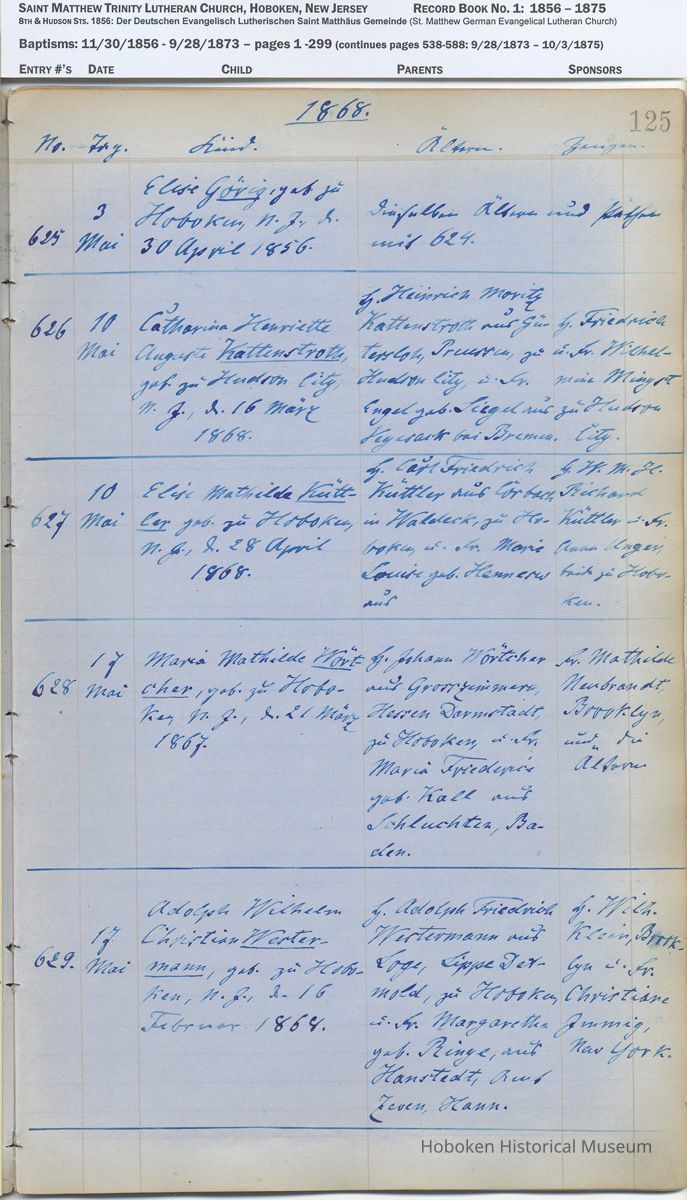 SAINT MATTHEW TRINITY LUTHERAN CHURCH, HOBOKEN, NEW JERSEY RECORD BOOK NO. 1: 1856 – 1875
8TH & HUDSON STS. 1856: Der Deutschen Evangelisch Lutherischen Saint Matthäus Gemeinde (St. Matthew German Evangelical Lutheran Church)
Baptisms: 11/30/1856 - 9/28/1873 – pages 1 -299 (continues pages 538-588: 9/28/1873 – 10/3/1875)
ENTRY #'S DATE CHILD PARENTS SPONSORS
1868. 125
No. Tag. Kind. Ältern. Zeugen.
625
3
Mai
Elise Görig, geb zu
Hoboken, N. J., d.
30 April 1856.
Dieselben Ältern und Pathen
mit 624.
626
10
Mai
Catharina Henriette
Auguste Kattenstroth,
geb. zu Hudson City,
N. J., d. 16 März
1868.
H. Heinrich Moritz
Kattenstroth aus Gü-
tersloh, Preussen, zu
Hudson City, u. Fr.
Engel geb. Siegel aus
Vegesack bei Bremen.
H. Friedrich
u. Fr. Wilhel-
mine Mingst
zu Hudson
City.
627
10
Mai
Elise Mathilde Kütt-
ler geb. zu Hoboken,
N. J., d. 28 April
1868.
H. Carl Friedrich
Küttler aus Corbach
in Waldeck, zu Ho-
boken, u. Fr. Marie
Louise geb. Hennerow
aus
H. W. M. H.
Richard
Küttler u. Fr.
Anna Unger,
beide zu Hobo-
ken.
628
17
Mai
Maria Mathilde Wört-
cher, geb. zu Hobo-
ken, N. J., d. 21 März
1867.
H. Johann Wörtcher
aus Grosszimmern,
Hessen Darmstadt,
zu Hoboken, u. Fr.
Maria Friederice
geb. Kall aus
Schluchten, Ba-
den.
Fr. Mathilde
Neubrandt,
Brooklyn,
und die
Ältern
629.
17
Mai
Adolph Wilhelm
Christian Wester-
mann, geb. zu Hobo-
ken, N. J., d. 16
Februar 1868.
H. Adolph Friedrich
Westermann aus
Loge, Lippe Det-
mold, zu Hoboken,
u. Fr. Margaretha
geb. Ringe, aus
Hanstedt, Amt
Zeven, Hann.
H. Wilh.
Klein, Brook-
lyn u. Fr.
Christiane
Immig,
New York.
Hoboken Historical Museum